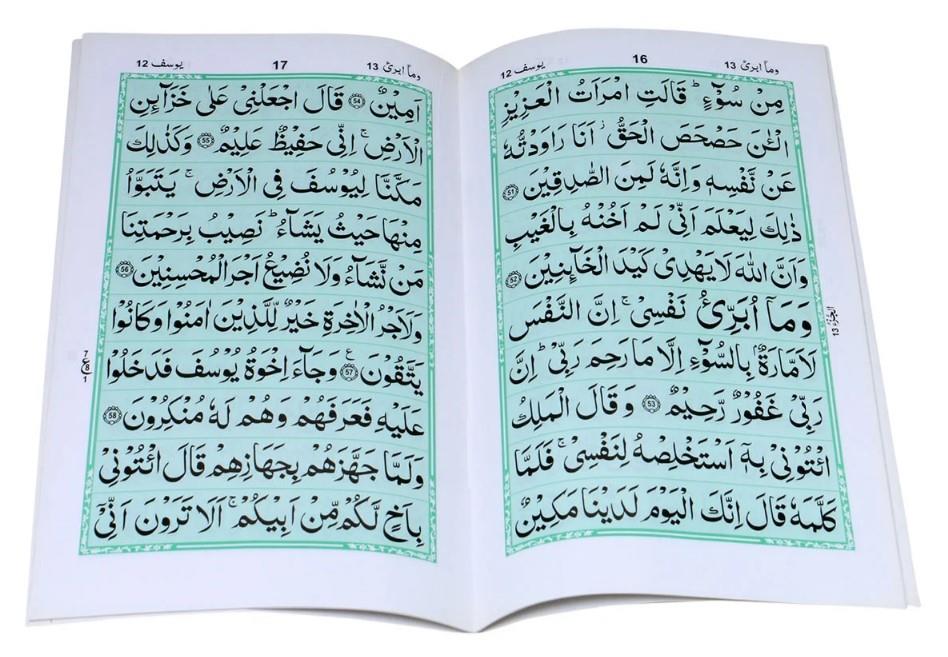 وما ابرئ 13
16
یوسف 12
مِنْ سُوْٓءٍ ؕ قَالَتِ امْرَاَتُ الْعَزِیْزِ
الْـٰٔنَ حَصْحَصَ الْحَقُّ ۫ اَنَا رَاوَدْتُّهٗ
عَنْ نَّفْسِهٖ وَاِنَّهٗ لَمِنَ الصّٰدِقِیْنَ ﴿51﴾
ذٰلِكَ لِیَعْلَمَ اَنِّیْ لَمْ اَخُنْهُ بِالْغَیْبِ
وَاَنَّ اللّٰهَ لَا یَهْدِیْ كَیْدَ الْخَآىِٕنِیْنَ ﴿52﴾
وَمَاۤ اُبَرِّئُ نَفْسِیْ ۚ اِنَّ النَّفْسَ
لَاَمَّارَةٌۢ بِالسُّوْٓءِ اِلَّا مَا رَحِمَ رَبِّیْ ؕ اِنَّ
رَبِّیْ غَفُوْرٌ رَّحِیْمٌ ﴿53﴾ وَقَالَ الْمَلِكُ
ائْتُوْنِیْ بِهٖۤ اَسْتَخْلِصْهُ لِنَفْسِیْ ۚ فَلَمَّا
كَلَّمَهٗ قَالَ اِنَّكَ الْیَوْمَ لَدَیْنَا مَكِیْنٌ
الجزء 13
وما ابرئ 13
17
یوسف 12
اَمِیْنٌ ﴿54﴾ قَالَ اجْعَلْنِیْ عَلٰی خَزَآىِٕنِ
الْاَرْضِ ۚ اِنِّیْ حَفِیْظٌ عَلِیْمٌ ﴿55﴾ وَكَذٰلِكَ
مَكَّنَّا لِیُوْسُفَ فِی الْاَرْضِ ۚ یَتَبَوَّاُ
مِنْهَا حَیْثُ یَشَآءُ ؕ نُصِیْبُ بِرَحْمَتِنَا
مَنْ نَّشَآءُ وَلَا نُضِیْعُ اَجْرَ الْمُحْسِنِیْنَ ﴿56﴾
وَلَاَجْرُ الْاٰخِرَةِ خَیْرٌ لِّلَّذِیْنَ اٰمَنُوْا وَكَانُوْا
یَتَّقُوْنَ ﴿57﴾ ع وَجَآءَ اِخْوَةُ یُوْسُفَ فَدَخَلُوْا
عَلَیْهِ فَعَرَفَهُمْ وَهُمْ لَهٗ مُنْكِرُوْنَ ﴿58﴾
وَلَمَّا جَهَّزَهُمْ بِجَهَازِهِمْ قَالَ ائْتُوْنِیْ
بِاَخٍ لَّكُمْ مِّنْ اَبِیْكُمْ ۚ اَلَا تَرَوْنَ اَنِّیْۤ
7
ع 8
1